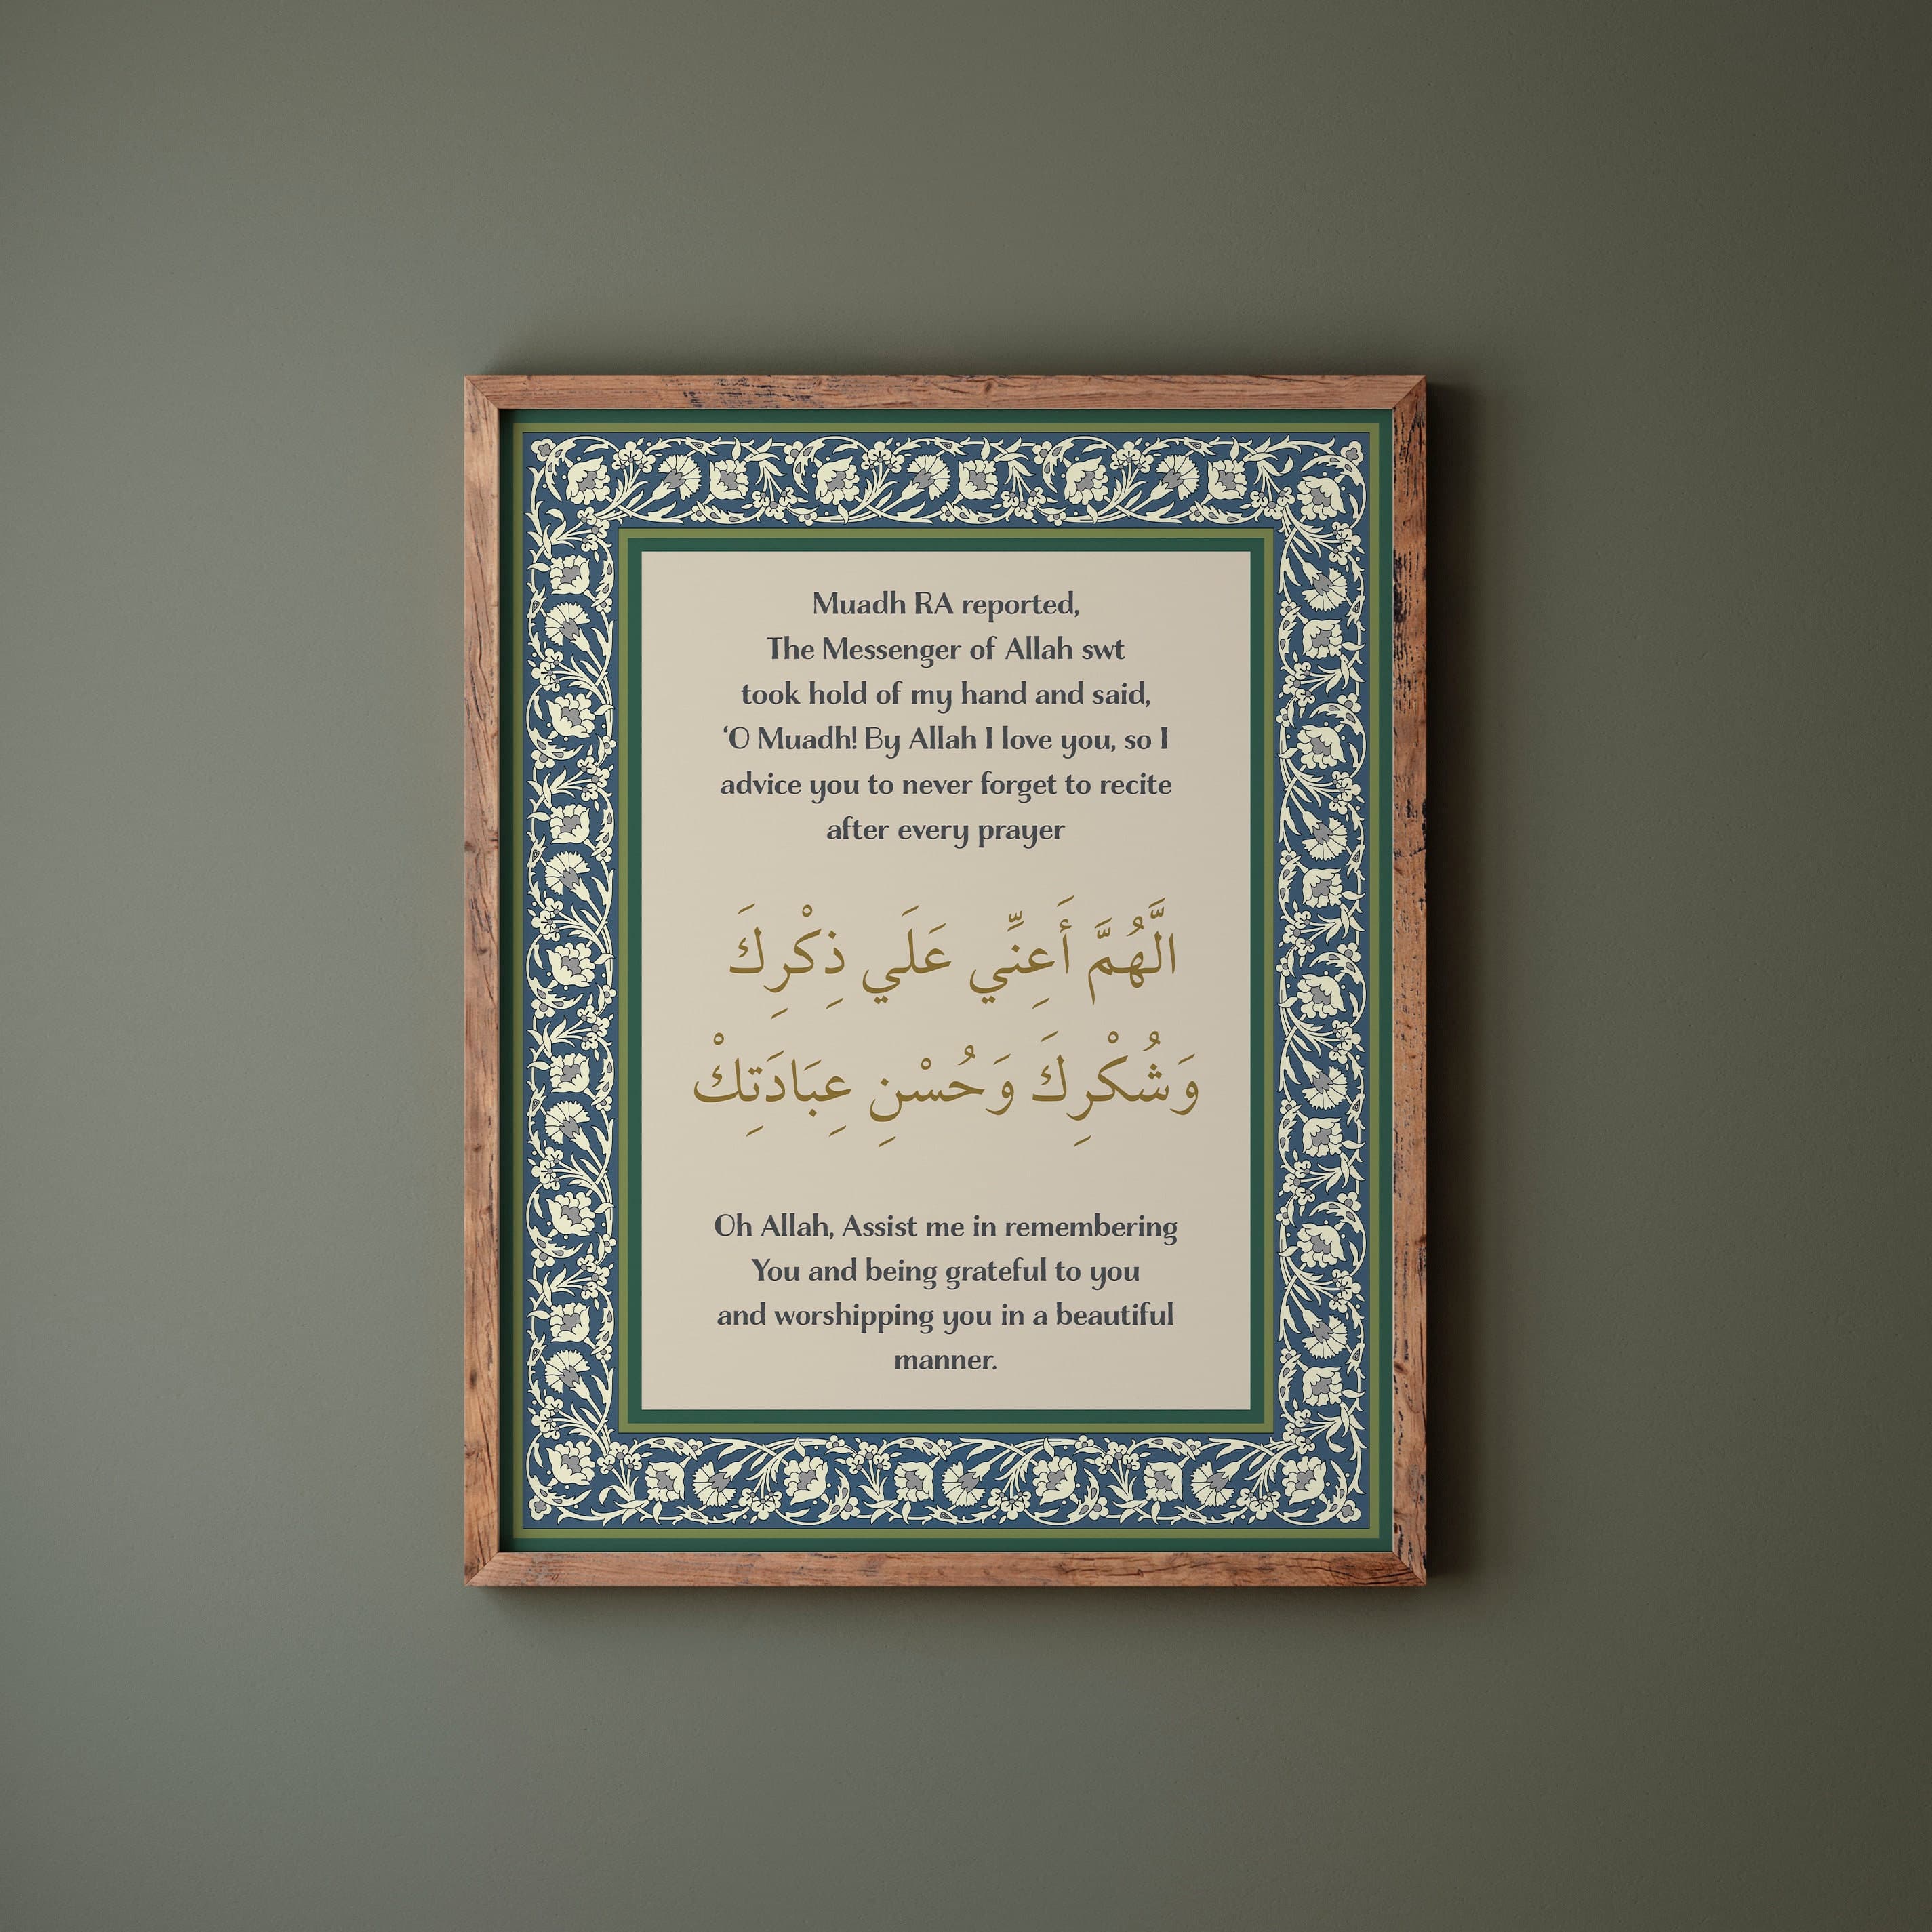 Muadh RA reported,
The Messenger of Allah swt
took hold of my hand and said,
‘O Muadh! By Allah I love you, so I
advice you to never forget to recite
after every prayer
الَّهُمَّ أَعِنِّي عَلَي ذِكْرِكَ
وَشُكْرِكَ وَحُسْنِ عِبَادَتِكْ
Oh Allah, Assist me in remembering
You and being grateful to you
and worshipping you in a beautiful
manner.